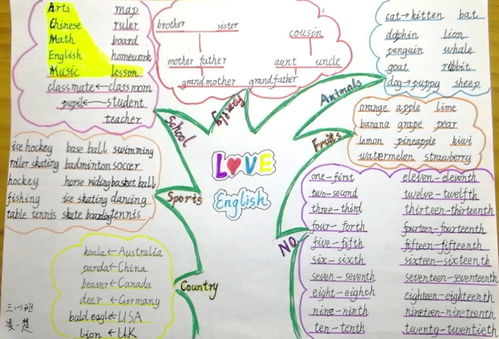 Arts map
Chinese ruler
Math board
English homework
Music lesson
classmate←classroom
pupil←student
teacher
School
brother sister
mother father
grandmother grandfather
cousin
aunt uncle
Family
cat→kitten bat
dolphin lion
penguin whale
goat rabbit
dog→puppy sheep
Animals
orange apple lime
banana grape pear
lemon pineapple kiwi
watermelon strawberry
Fruits
LOVE
English
ice hockey base ball swimming
roller skating badminton soccer
hockey horse riding basket ball
fishing ice skating dancing
table tennis skate boarding tennis
Sports
koala←Australia
panda←China
beaver←Canada
deer←Germany
bald eagle←USA
lion←UK
Country
one-first eleven-eleventh
two-second twelve-twelfth
three-third thirteen-thirteenth
four-forth fourteen-fourteenth
five-fifth fifteen-fifteenth
six-sixth sixteen-sixteenth
seven-seventh seventeen-seventeenth
eight-eighth eighteen-eighteenth
nine-ninth nineteen-nineteenth
ten-tenth twenty-twentieth
NO.